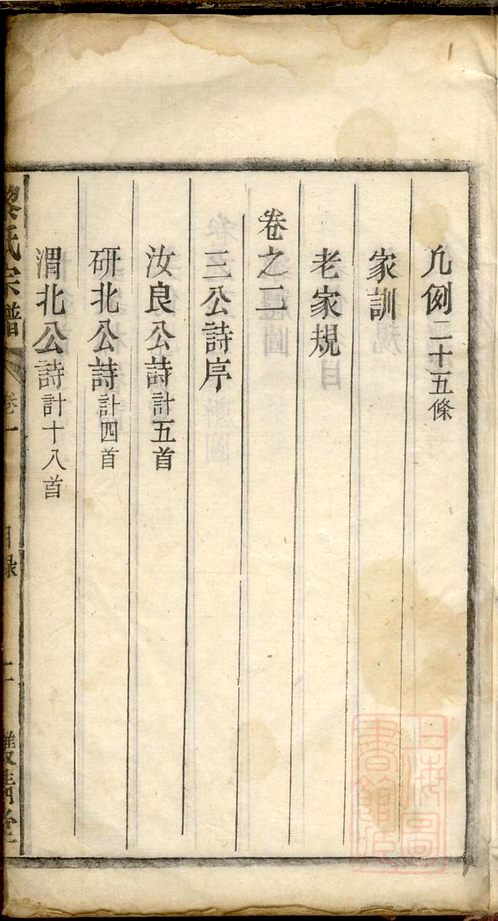 凡例二十五條
家訓
老家規
卷之二
三公詩序
汝良公詩計五首
研北公詩計四首
渭北公詩計十八首
黎氏宗譜
卷一
目錄
上海圖書館藏